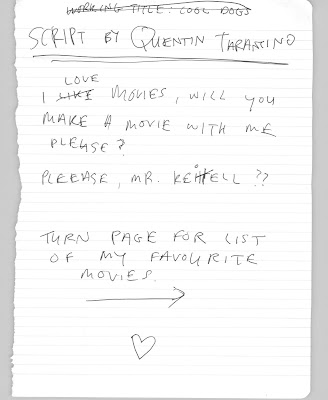 WORKING TITLE: COOL DOGS
SCRIPT BY QUENTIN TARANTINO
LOVE
I LIKE MOVIES, WILL YOU
MAKE A MOVIE WITH ME
PLEASE?
PLEEASE, MR. KEITELL ??
TURN PAGE FOR LIST
OF MY FAVOURITE
MOVIES.